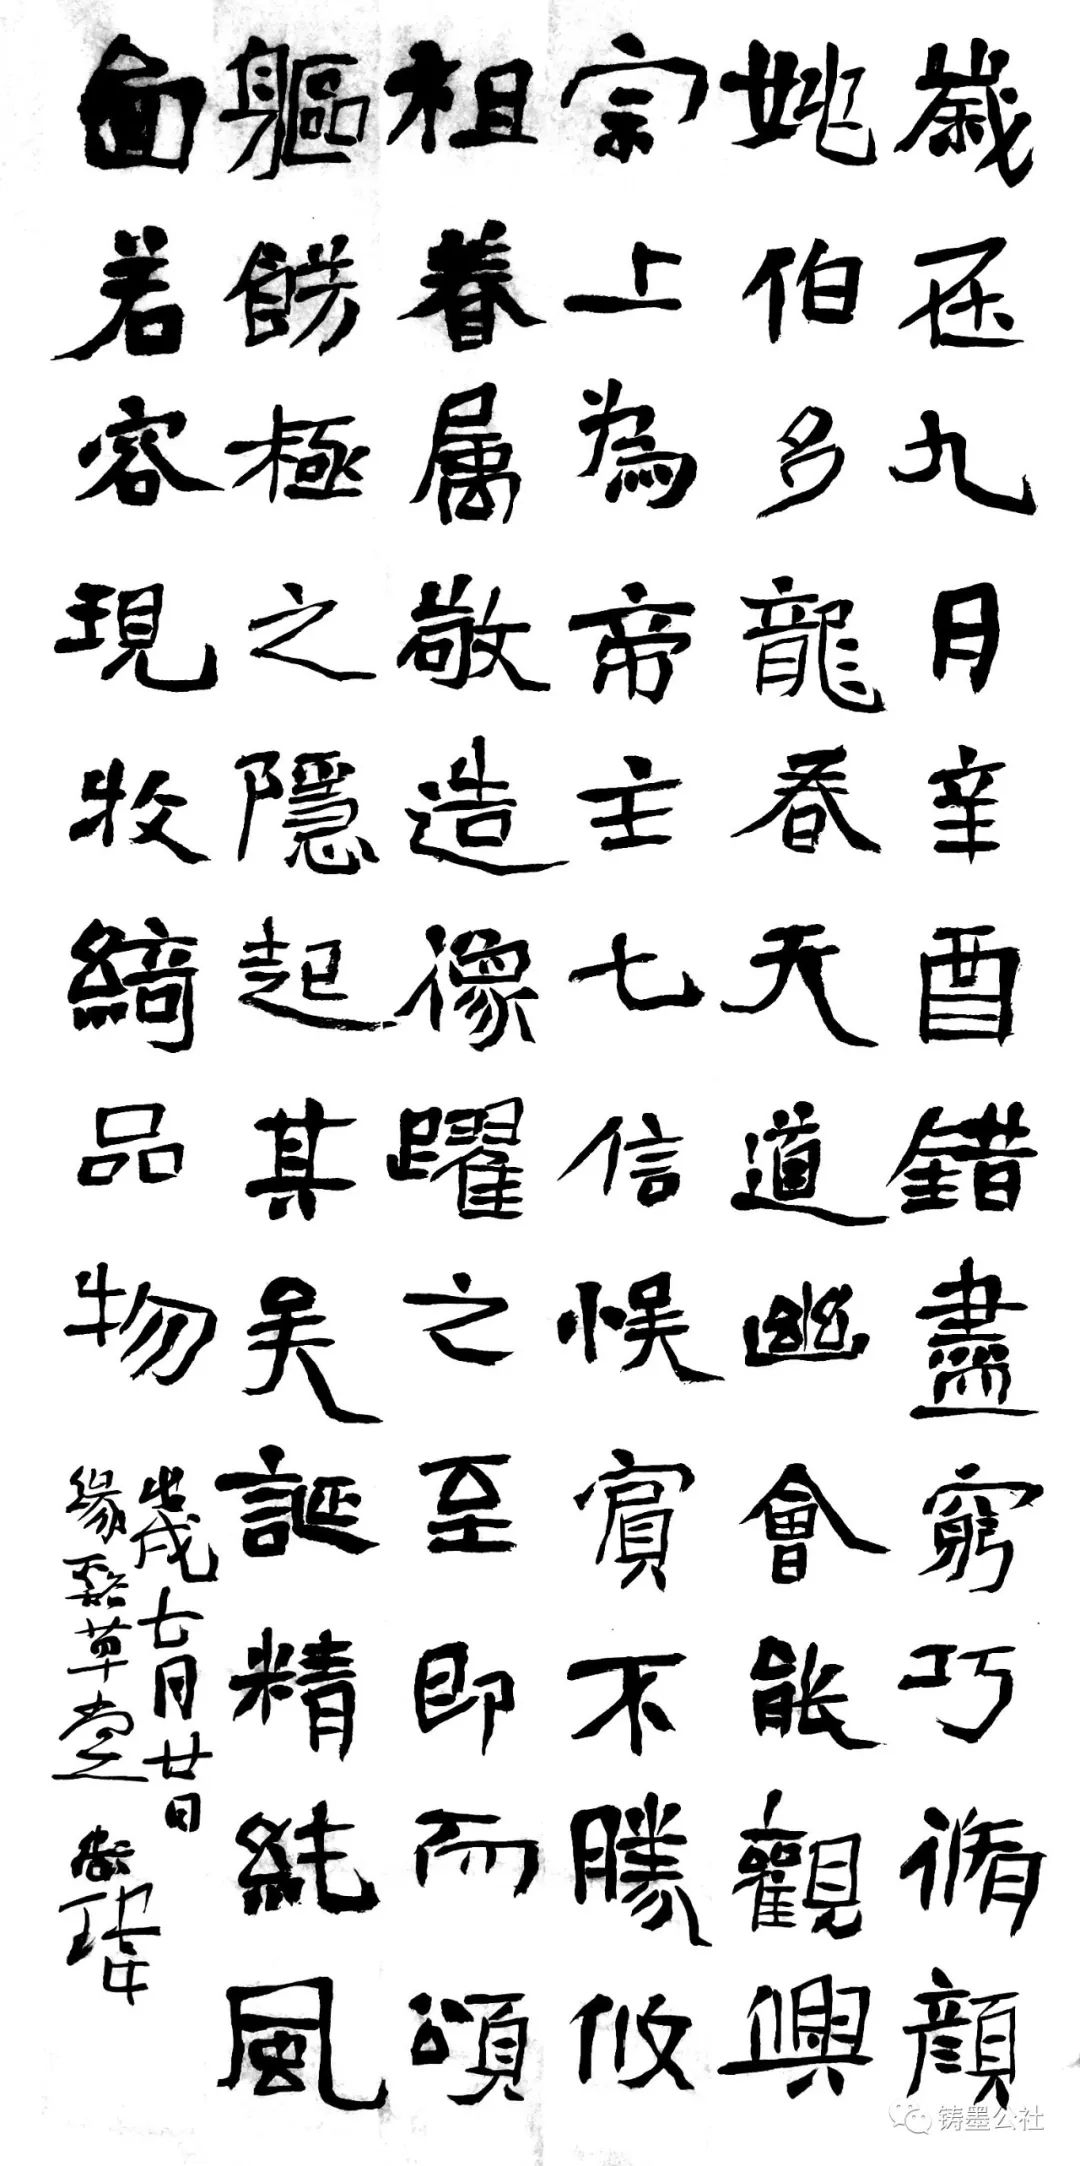 歲在九月辛酉錯盡窮巧循顏
姚伯多龍春天道幽會能觀興
宗上為帝主七信悞賓不勝攸
祖眷属敬造像躍之至即而頌
軀餝極之隱起其美誕精純風
面若容現牧綺品物
戊戌七月廿日
緣谿草堂
铸墨公社